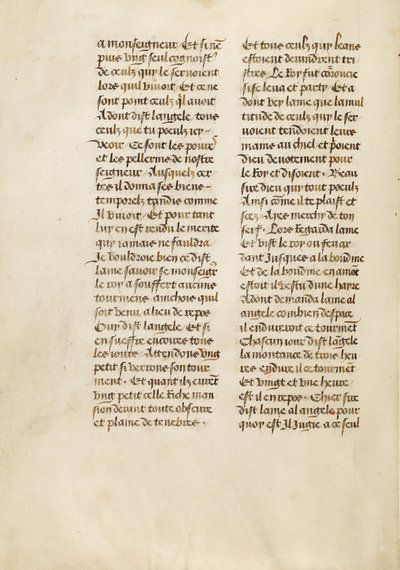 a monseigneur Et si ne
puis ung seul cognoist^r
de ceulx quy le servoient
lors quil vivoit Et ce ne
sont point ceulx ql avoit
Adont dist langele tous
ceulx que tu peulz icy
veoir Ce sont les povres
et les pellerins de nostre
seigneur Ausquelz cer
tes il donna ses biens
temporelz tandis comme
Il vivoit Et pour tant
luy en est rendu le merite
quy iamais ne fauldra
Je vouldroie bien ce dist
lame savoir se monseigr
le roy a souffert aucuns
tourmens ainchois quil
soit venu a lieu de repos
Ouy dist langele Et si
en sueffre encores tous
les iours Attendons ung
petit si verrons son tour
ment Et quant ilz eurent
ung petit celle Riche man
sion devint toute obscure
et plaine de tenebres
Et tous ceulx quy leans
estoient devindrent tri
stres Le Roy fut couroucie
si se leva et party Et a
dont vey lame que la mul
titude de ceulx quy le ser
voient tendoient leurs
mains au chiel et proient
Dieu devotement pour
le Roy et disoient Beau
sire dieu quy tout peulz
Ainsi come il te plaist et
scez Ayes merchy de ton
serf Lors Regarda lame
Et vist le roy ou feu ar
dant Jusques a la boudine
Et de la boudine en amōt
estoit il vestu dune hayre
Adont demanda lame al
angele combien despace
il enduroit ce tourmēt
Chascun iour dist lāgele
la montance de trois heu
res endure il ce tourmēt
Et vingt et une heure
est il en repos Chier sire
dist lame al angele pour
quoy est Il Jugie a ce seul